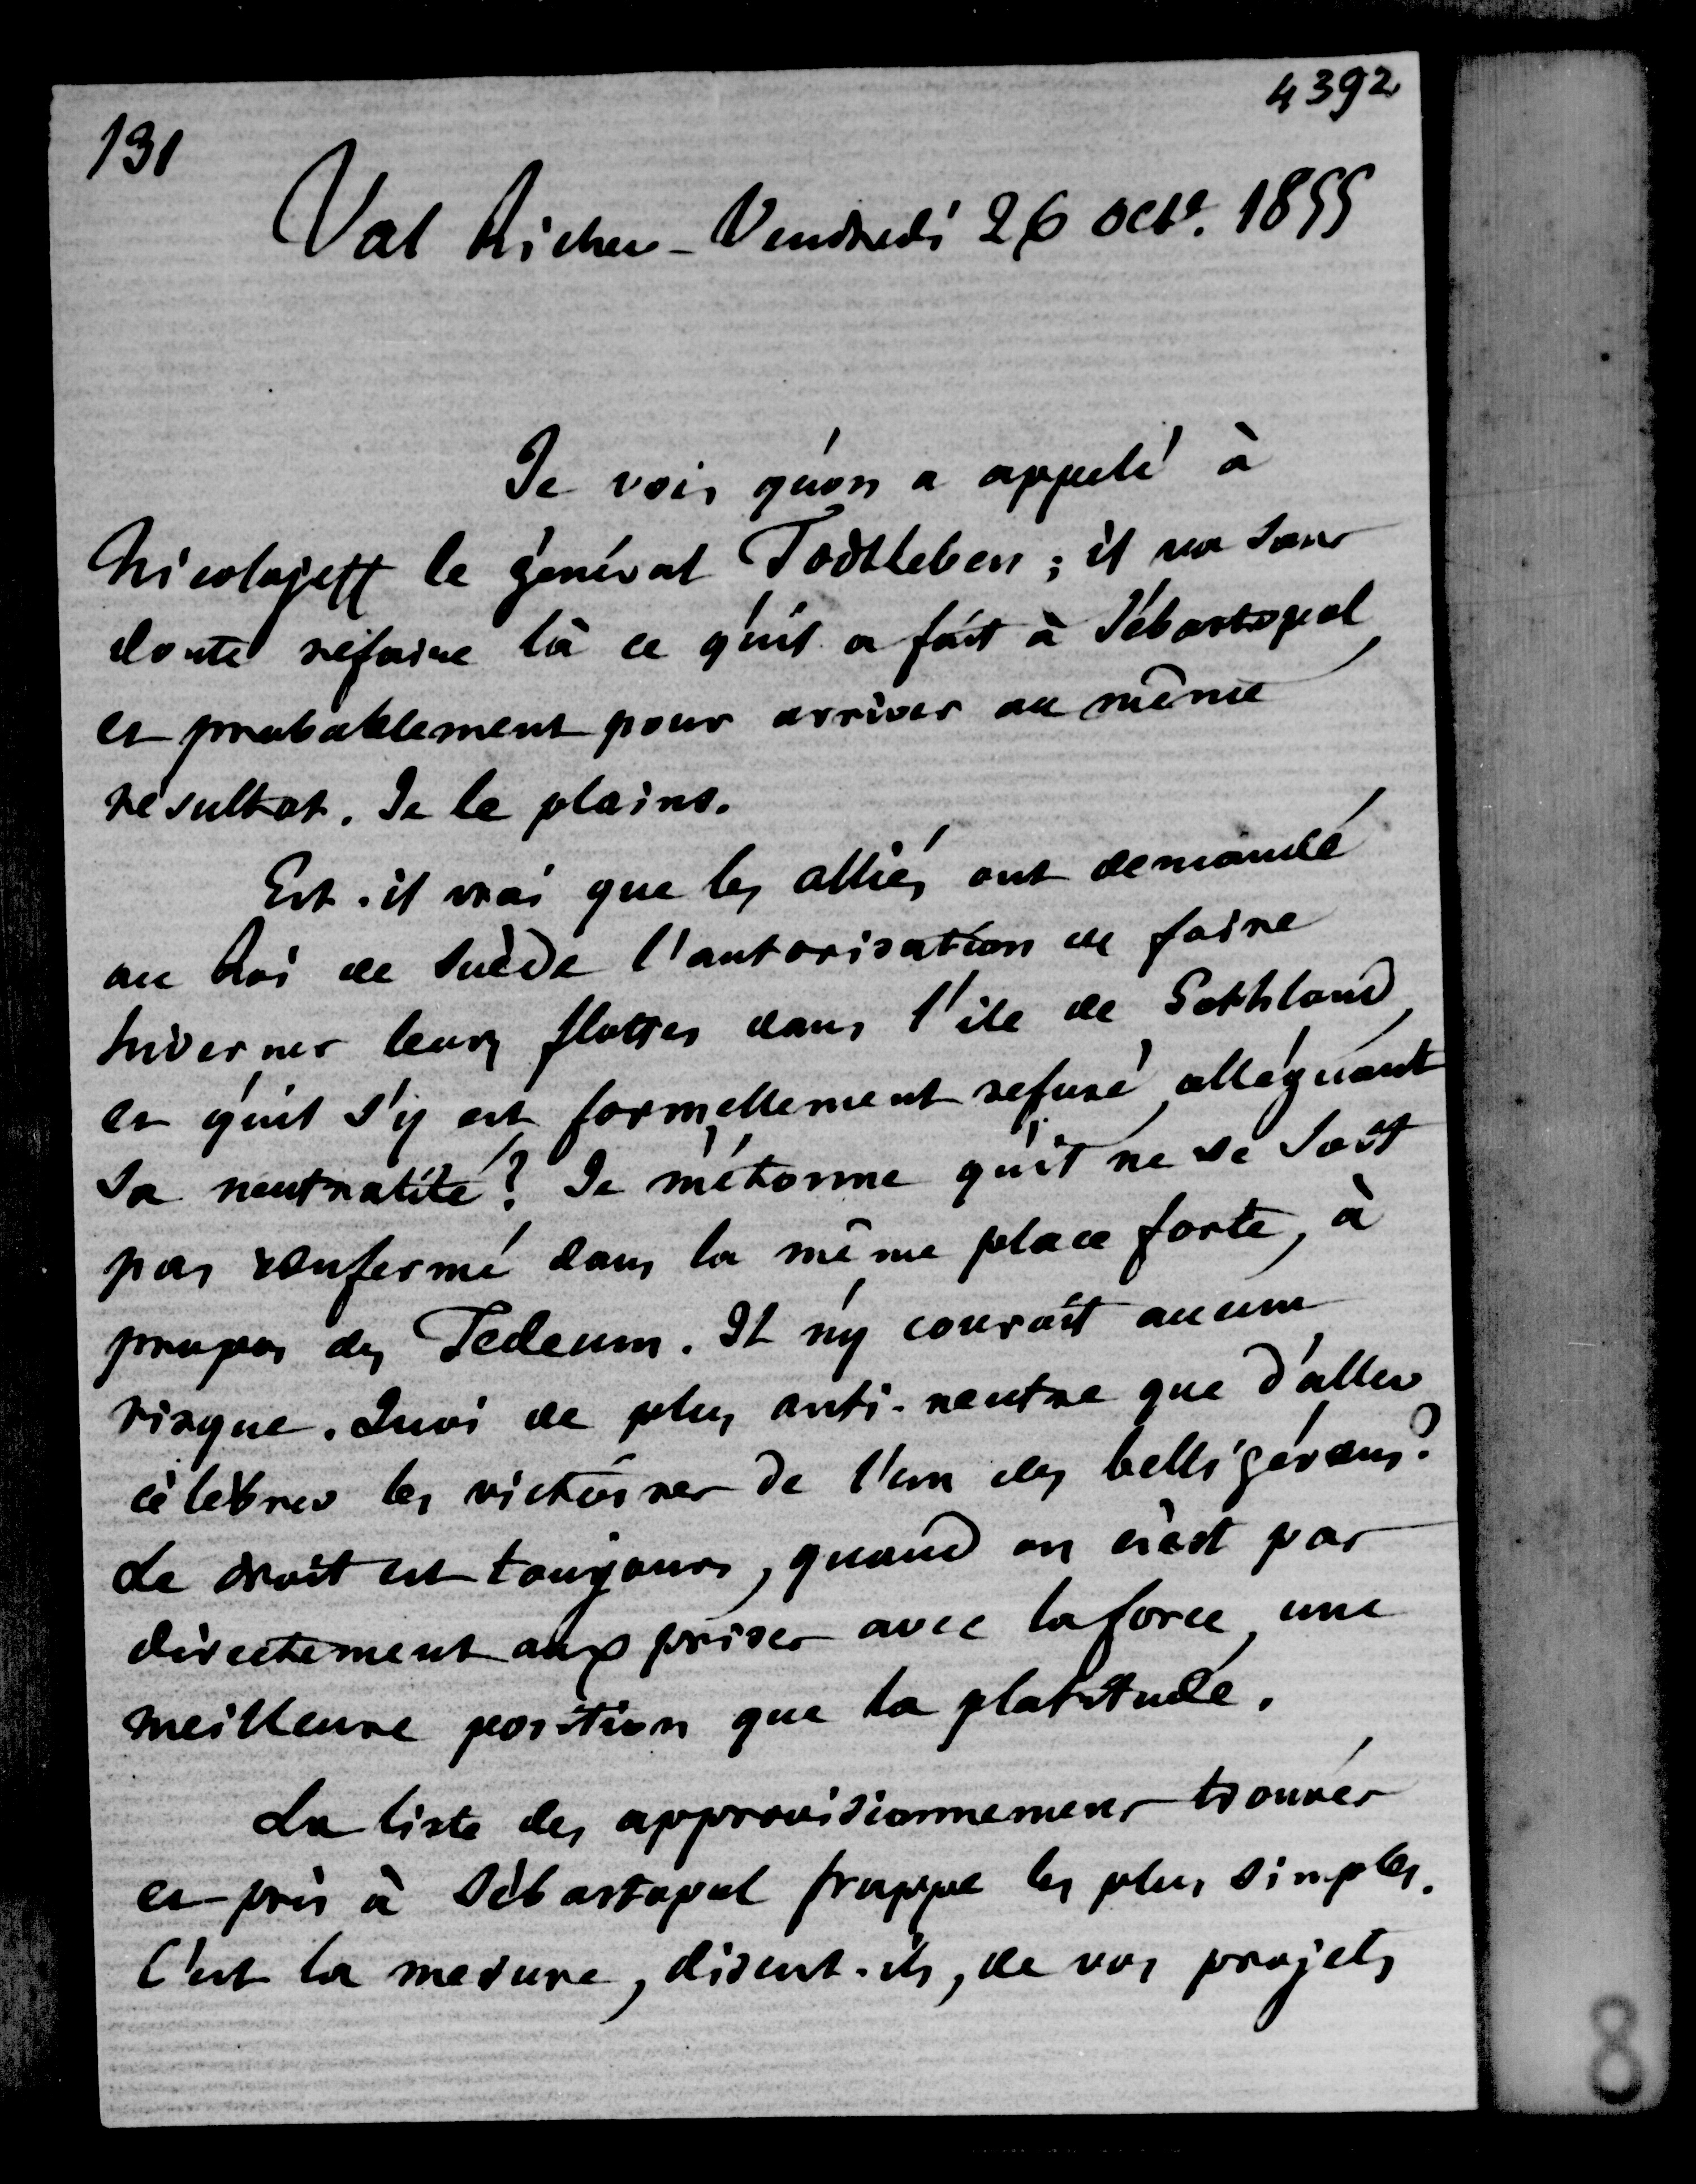 4392
131
Val Richer - Vendredi 26 octe. 1855
Je vois qu'on a appelé à
Nicolajeff le général Todtleben ; il va sans
doute refaire là ce qu'il a fait à Sébastopol,
et probablement pour arriver au même
résultat. Je le plains.
Est-il vrai que les alliés ont demandé
au Roi de Suède l'autorisation de faire
hiverner leurs flottes dans l'ile de Gothland,
et qu'il s'y est formellement refusé, alléguant
sa neutralité ? Je m'étonne qu'il ne se soit
pas renfermé dans la même place forte, à
propos des Tedeum. Il n'y courait aucun
risque. Quoi de plus anti-neutre que d'aller
célébrer les victoires de l'un des belligérans ?
Le droit est toujours, quand on n'est pas
directement aux prises avec la force, une
meilleure position que la platitude.
La liste des approvisionnemens trouvés
et pris à Sébastopol frappe les plus simples.
C'est la mesure, disent-ils, de vos projets
8